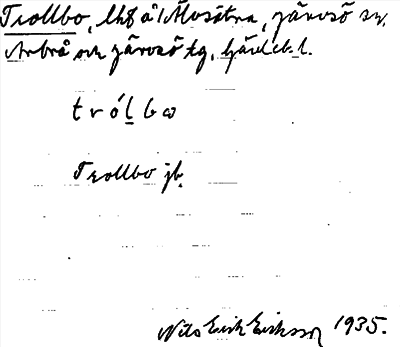 Trollbo, lht å Mosätra, Järvsö sn,
Arbrå och Järvsö tg, Gävleb. l.
trólbω
Trollbo jb.
Nils Erik Eriksson 1935.